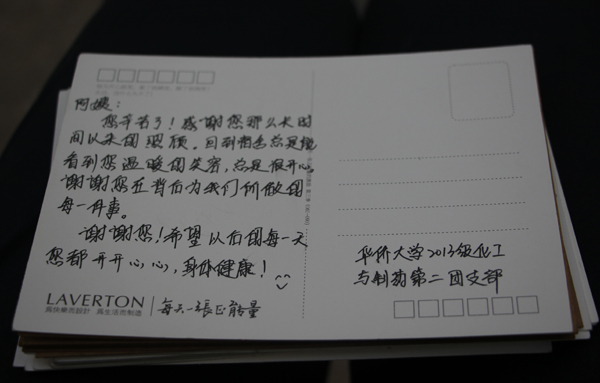 阿姨：
您辛苦了！感谢您那么长时
间以来的照顾。回到宿舍总是能
看到您温暖的笑容，总是很开心。
谢谢您在背后为我们所做的
每一件事。
谢谢您！希望以后的每一天
您都开开心心，身体健康！
LAVERTON
為快樂而設計 為生活而制造
每天一張正能量
华侨大学2013级化工
与制药第二团支部